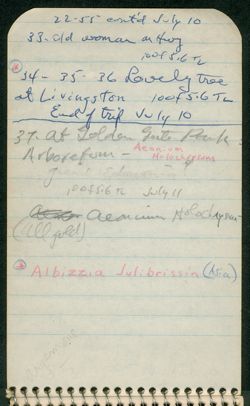 22-55 cont'd July 10
33. old woman on Hwy
100 f 5.6 TL
34 - 35 - 36 Lovely tree
at Livingston 100 f 5.6 TL
End of trip July 10
37. at Golden Gate Park
Arboretum - Aeonium
Holochrysum
100 f 5.6 July 11
Aeonium Holochrysum
(all gold)
Albizzia Julibrissin (Asia)